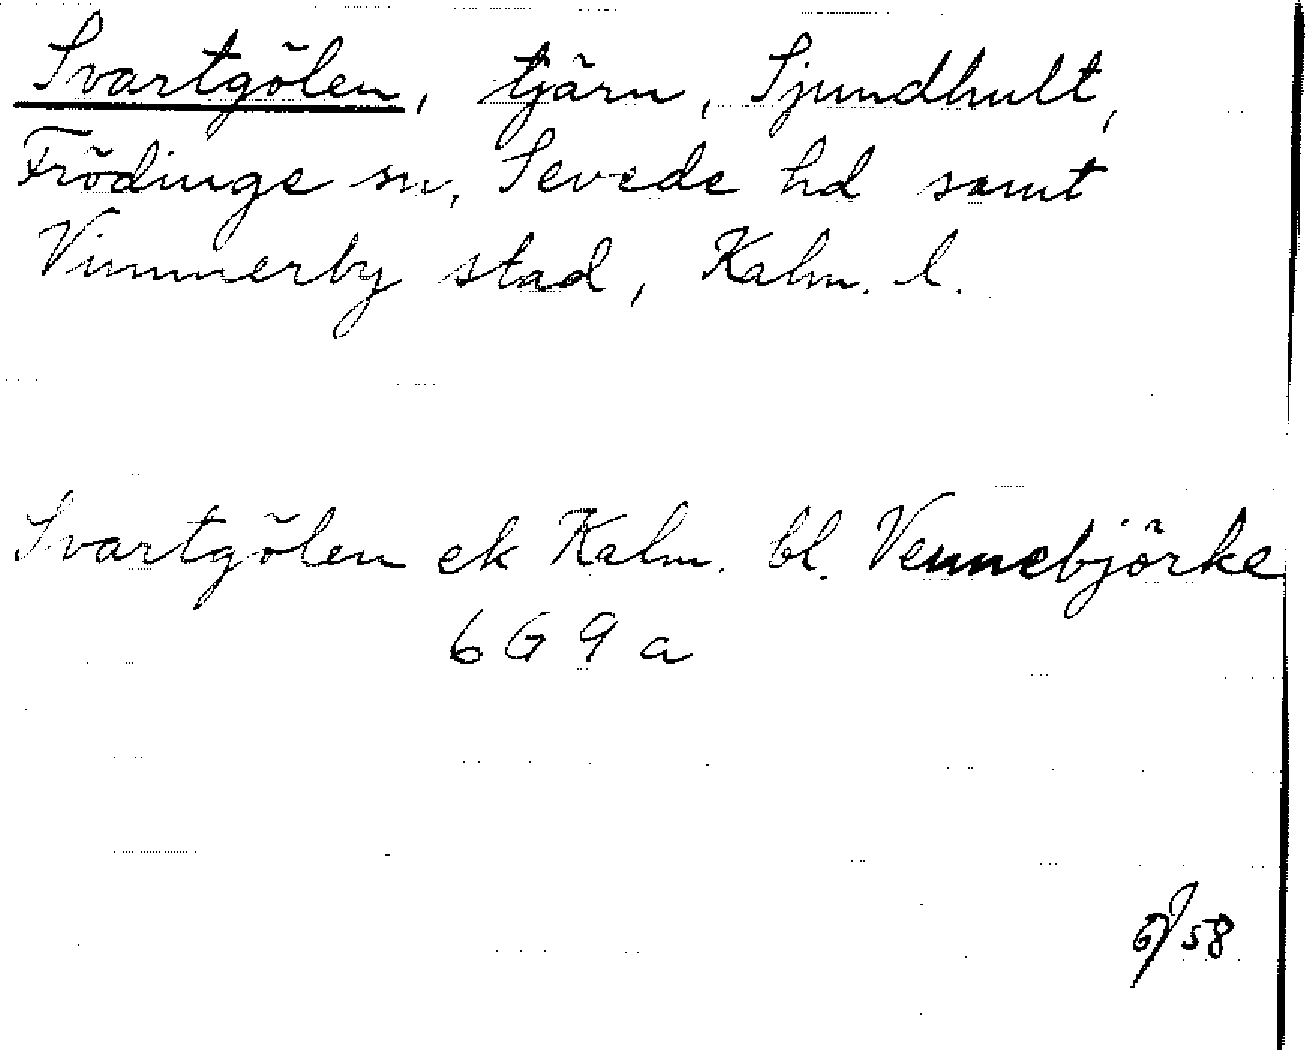 Svartgölen, tjärn, Sjundhult,
Frödinge sn, Sevede hd samt
Vimmerby stad, Kalm. l.
Svartgölen ek Kalm. bl. Vennebjörke
6 G 9 a
58